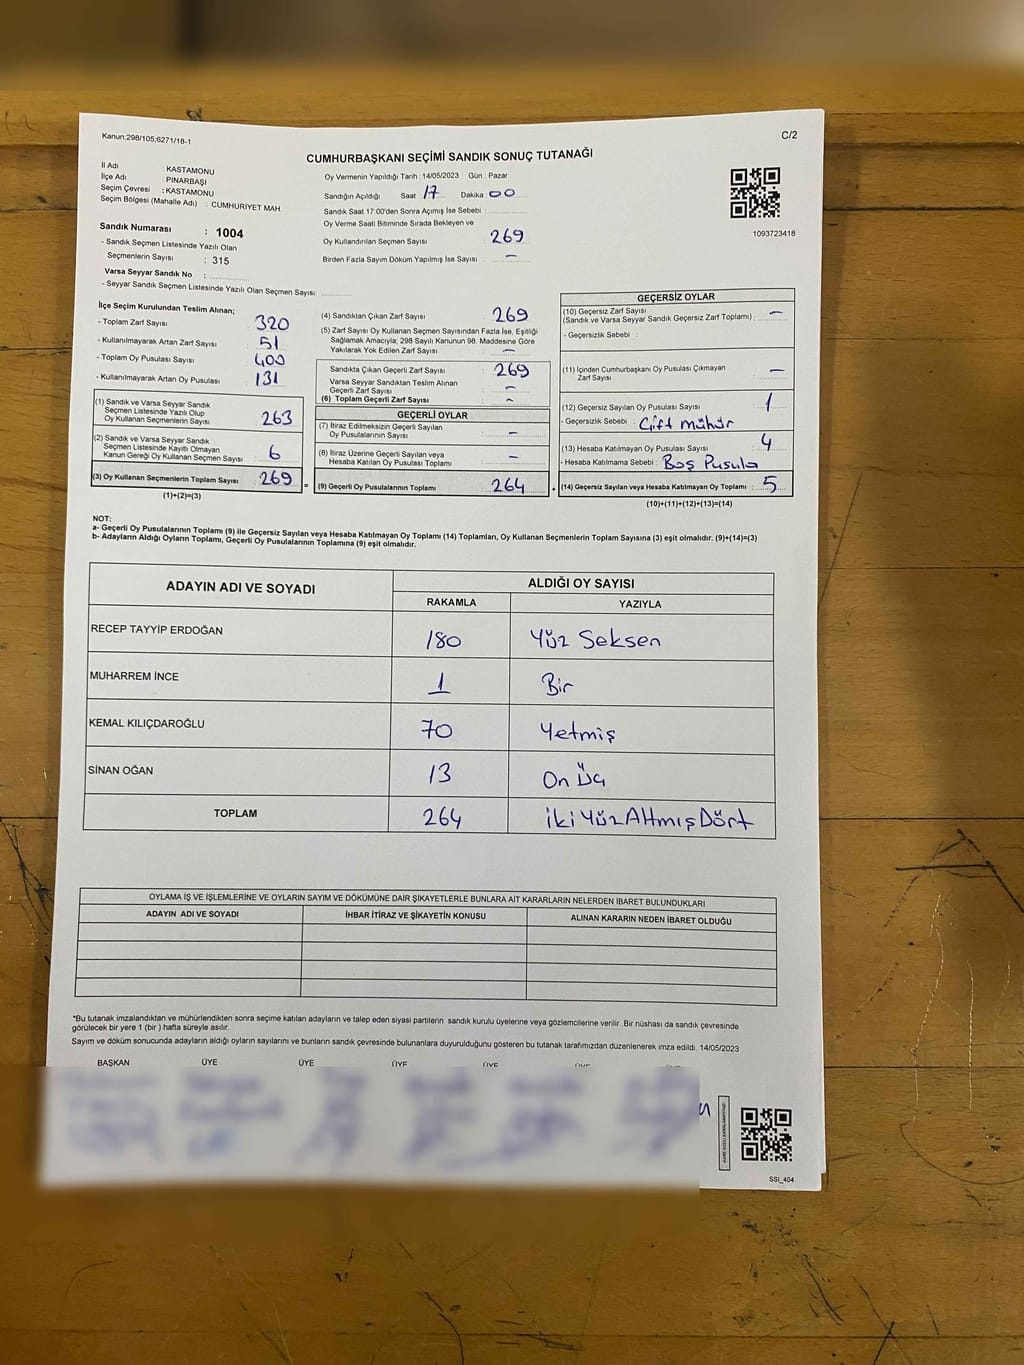 Kanun;298/105;6271/18-1
C/2
CUMHURBAŞKANI SEÇİMİ SANDIK SONUÇ TUTANAĞI
İl Adı : KASTAMONU
İlçe Adı : PINARBAŞI
Seçim Çevresi : KASTAMONU
Seçim Bölgesi (Mahalle Adı) : CUMHURİYET MAH.
Sandık Numarası : 1004
- Sandık Seçmen Listesinde Yazılı Olan
Seçmenlerin Sayısı : 315
Varsa Seyyar Sandık No :
- Seyyar Sandık Seçmen Listesinde Yazılı Olan Seçmen Sayısı:
Oy Vermenin Yapıldığı Tarih : 14/05/2023 Gün : Pazar
Sandığın Açıldığı Saat 17 Dakika : 00
Sandık Saat 17:00'den Sonra Açımış İse Sebebi :
Oy Verme Saati Bitiminde Sırada Bekleyen ve
Oy Kullandırılan Seçmen Sayısı 269
Birden Fazla Sayım Döküm Yapılmış İse Sayısı : —
1093723418
İlçe Seçim Kurulundan Teslim Alınan;
- Toplam Zarf Sayısı 320
- Kullanılmayarak Artan Zarf Sayısı : 51
- Toplam Oy Pusulası Sayısı 400
- Kullanılmayarak Artan Oy Pusulası : 131
(1) Sandık ve Varsa Seyyar Sandık
Seçmen Listesinde Yazılı Olup
Oy Kullanan Seçmenlerin Sayısı 263
(2) Sandık ve Varsa Seyyar Sandık
Seçmen Listesinde Kayıtlı Olmayan
Kanun Gereği Oy Kullanan Seçmen Sayısı 6
(3) Oy Kullanan Seçmenlerin Toplam Sayısı 269
(1)+(2)=(3)
(4) Sandıktan Çıkan Zarf Sayısı 269
(5) Zarf Sayısı Oy Kullanan Seçmen Sayısından Fazla İse, Eşitliği
Sağlamak Amacıyla, 298 Sayılı Kanunun 98. Maddesine Göre
Yakılarak Yok Edilen Zarf Sayısı —
Sandıkta Çıkan Geçerli Zarf Sayısı 269
Varsa Seyyar Sandıktan Teslim Alınan
Geçerli Zarf Sayısı —
(6) Toplam Geçerli Zarf Sayısı -
GEÇERLİ OYLAR
(7) İtiraz Edilmeksizin Geçerli Sayılan
Oy Pusulalarının Sayısı —
(8) İtiraz Üzerine Geçerli Sayılan veya
Hesaba Katılan Oy Pusulası Toplamı —
= (9) Geçerli Oy Pusulalarının Toplamı 264
GEÇERSİZ OYLAR
(10) Geçersiz Zarf Sayısı
(Sandık ve Varsa Seyyar Sandık Geçersiz Zarf Toplamı) : —
- Geçersizlik Sebebi :
(11) İçinden Cumhurbaşkanı Oy Pusulası Çıkmayan
Zarf Sayısı —
(12) Geçersiz Sayılan Oy Pusulası Sayısı 1
- Geçersizlik Sebebi : Çift Mühür
(13) Hesaba Katılmayan Oy Pusulası Sayısı 4
- Hesaba Katılmama Sebebi : Boş Pusula
+ (14) Geçersiz Sayılan veya Hesaba Katılmayan Oy Toplamı : 5
(10)+(11)+(12)+(13)=(14)
NOT:
a- Geçerli Oy Pusulalarının Toplamı (9) ile Geçersiz Sayılan veya Hesaba Katılmayan Oy Toplamı (14) Toplamları, Oy Kullanan Seçmenlerin Toplam Sayısına (3) eşit olmalıdır. (9)+(14)=(3)
b- Adayların Aldığı Oyların Toplamı, Geçerli Oy Pusulalarının Toplamına (9) eşit olmalıdır.
ADAYIN ADI VE SOYADI ALDIĞI OY SAYISI
RAKAMLA YAZIYLA
RECEP TAYYİP ERDOĞAN 180 Yüz Seksen
MUHARREM İNCE 1 Bir
KEMAL KILIÇDAROĞLU 70 Yetmiş
SİNAN OĞAN 13 On Üç
TOPLAM 264 İki Yüz Altmış Dört
OYLAMA İŞ VE İŞLEMLERİNE VE OYLARIN SAYIM VE DÖKÜMÜNE DAİR ŞİKAYETLERLE BUNLARA AİT KARARLARIN NELERDEN İBARET BULUNDUKLARI
ADAYIN ADI VE SOYADI İHBAR İTİRAZ VE ŞİKAYETİN KONUSU ALINAN KARARIN NEDEN İBARET OLDUĞU
*Bu tutanak imzalandıktan ve mühürlendikten sonra seçime katılan adayların ve talep eden siyasi partilerin sandık kurulu üyelerine veya gözlemcilerine verilir. Bir nüshası da sandık çevresinde
görülecek bir yere 1 (bir ) hafta süreyle asılır.
Sayım ve döküm sonucunda adayların aldığı oyların sayılarını ve bunların sandık çevresinde bulunanlara duyurulduğunu gösteren bu tutanak tarafımızdan düzenlenerek imza edildi. 14/05/2023
BAŞKAN ÜYE ÜYE ÜYE ÜYE ÜYE ÜYE
SSI_404